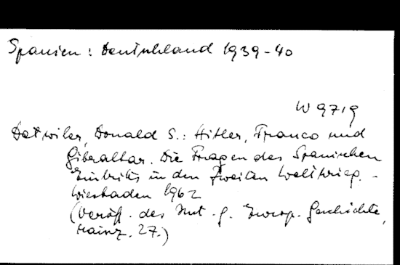 Spanien: Deutschland 1939-40
W 9719
Detwiler, Donald S.: Hitler, Franco und
Gibraltar. Die Fragen des Spanischen
Eintritts in den Zweiten Weltkrieg. -
Wiesbaden 1962
(Veröff. des Inst. f. Europ. Geschichte,
Mainz. 27.)